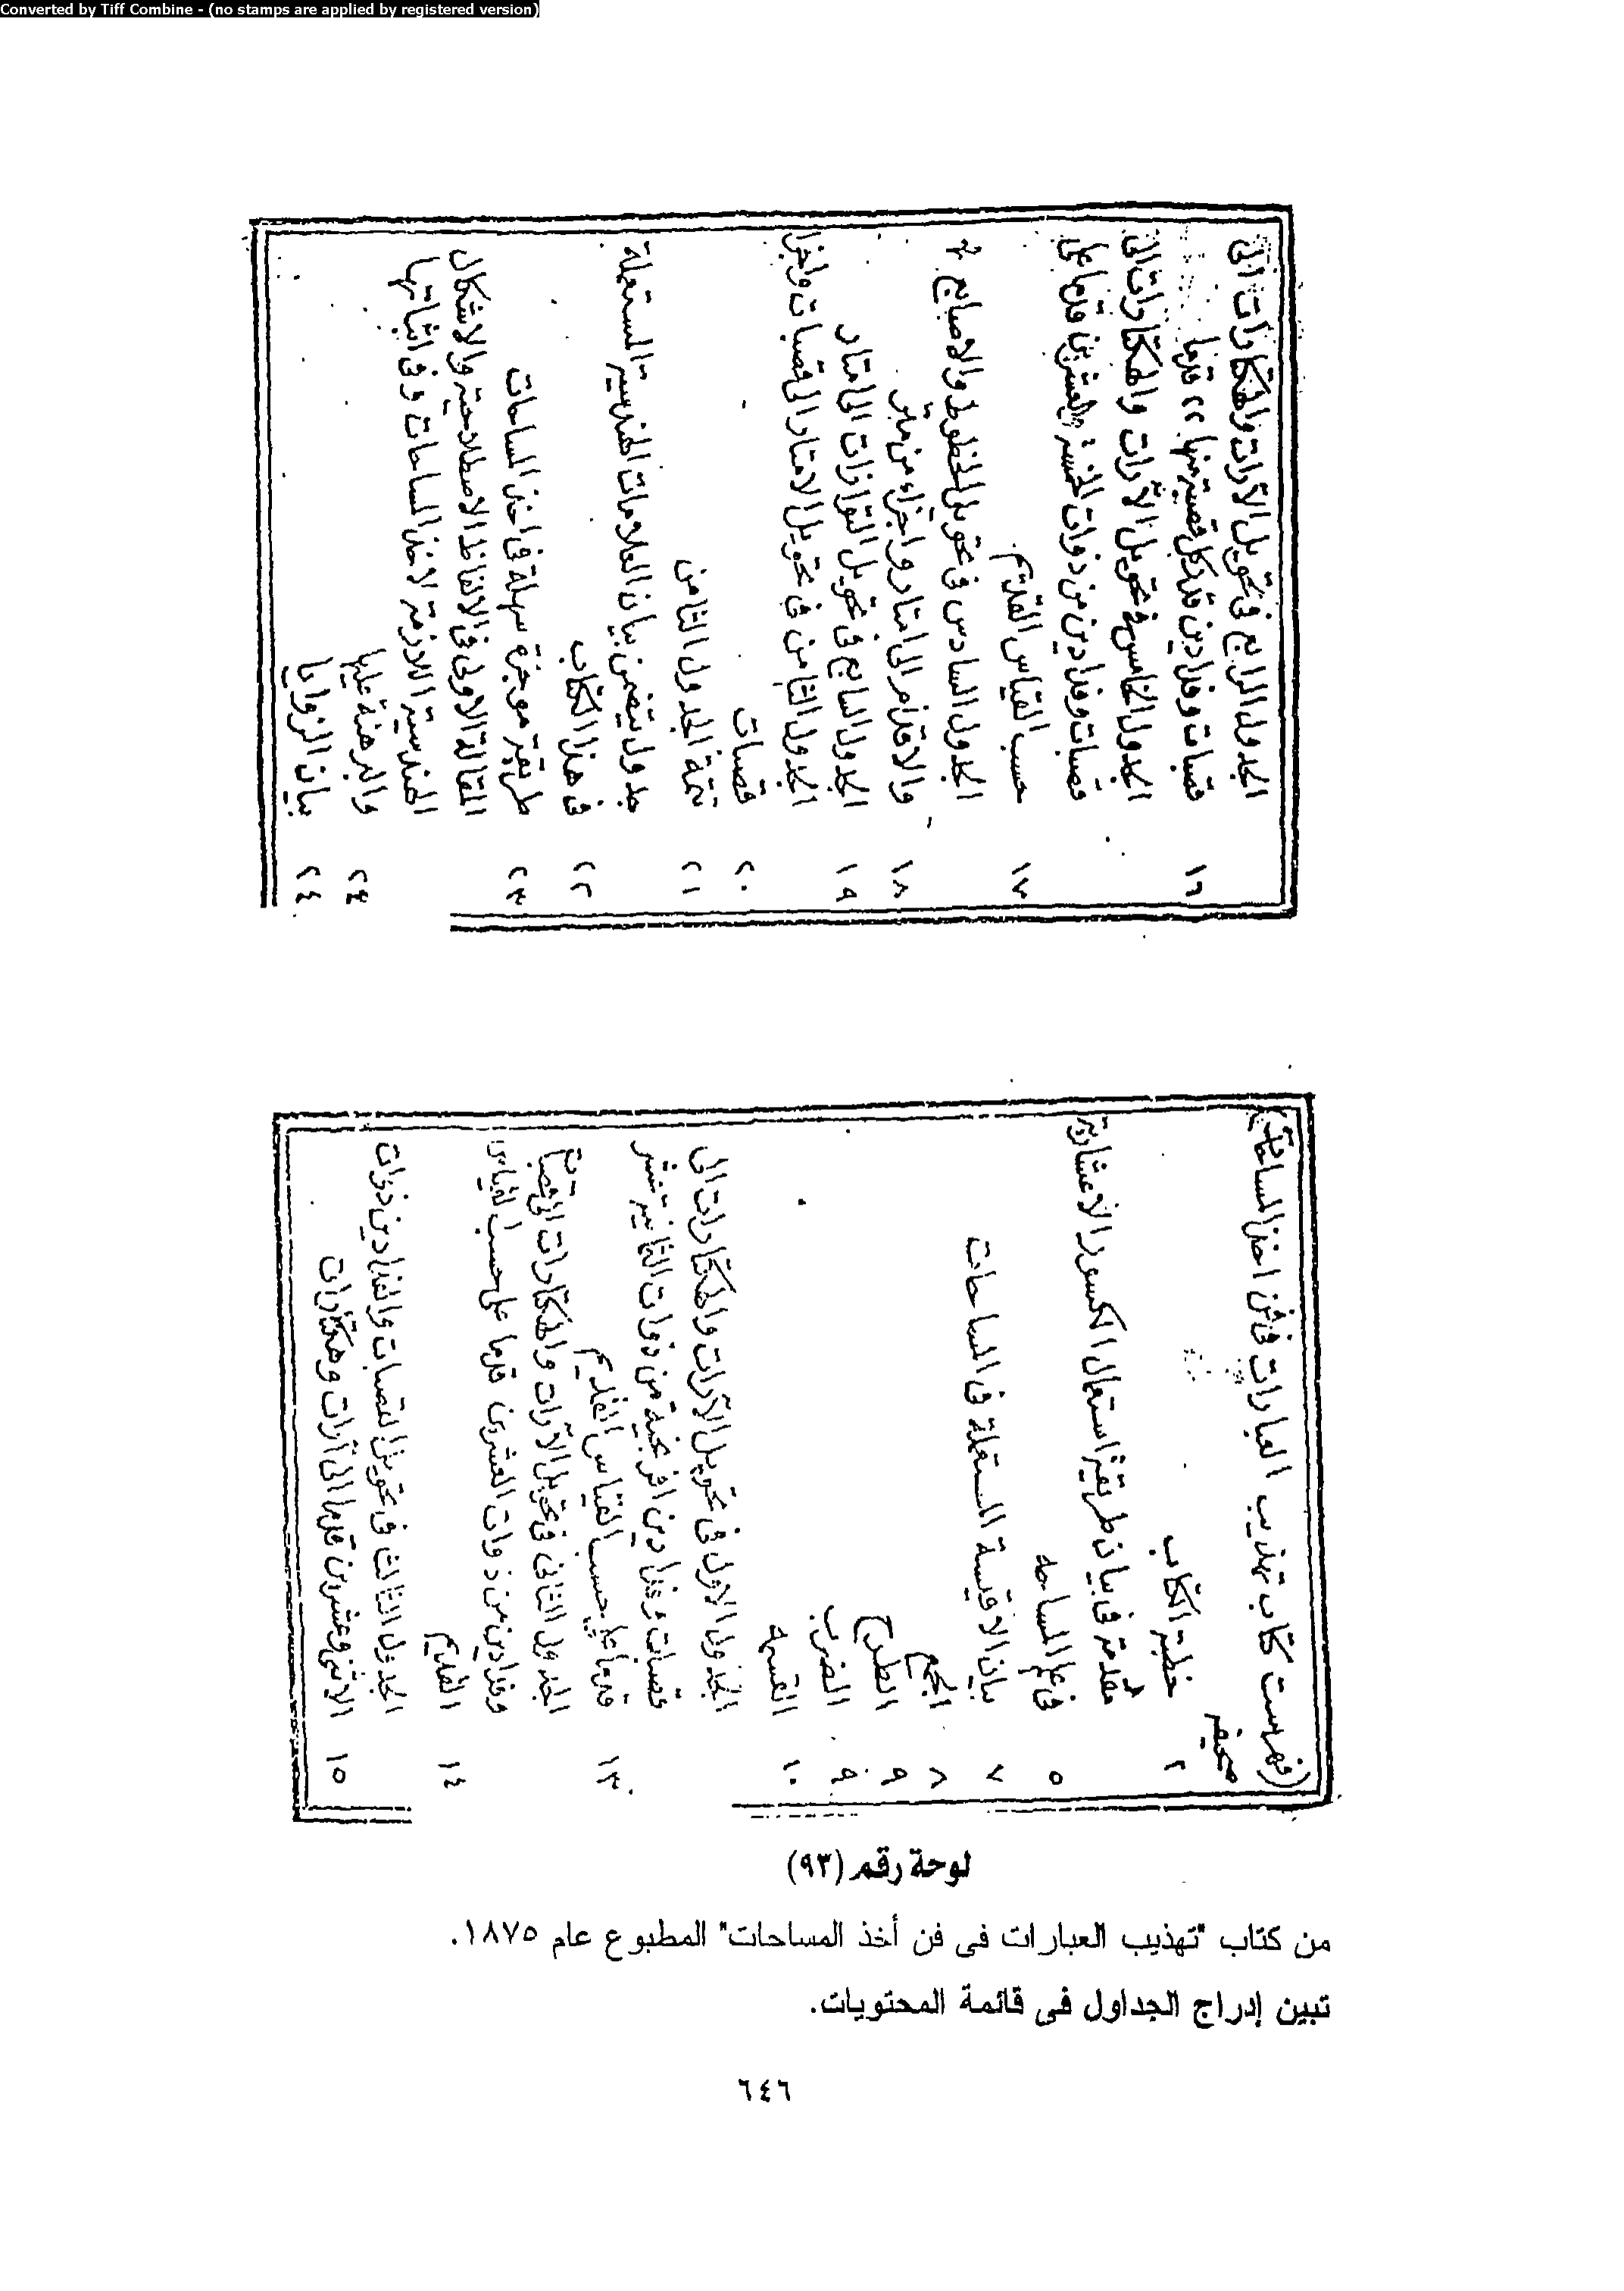 Converted by Tiff Combine - (no stamps are applied by registered version)
(فهرست كتاب تهذيب العبارات فى فن اخذ المساحات)
صحيفه
٢ خطبة الكتاب
مقدمة فى بيان طريقة استعمال الكسور الاعشارية
٥ فى علم المساحه
٧ بيان الاقيسة المستعملة فى المساحات
٨ الجمع
٩ الطرح
٩ الضرب
١٠ القسمه
الجدول الاول فى تحويل الآرات والهكتارات الى
قصبات وفدادين افرنجية من ذوات الثمانية عشر
١٣ قدما على حسب القياس القديم
الجدول الثانى فى تحويل الآرات والهكتارات الى قصبات
وفدادين من ذوات العشرين قدما على حسب القياس
١٤ القديم
الجدول الثالث فى تحويل القصبات والفدادين ذوات
١٥ الاثنى وعشرين قدما الى آرات وهكتارات
الجدول الرابع فى تحويل الآرات والهكتارات الى
١٦ قصبات وفدادين قدر كل قصبة منها ٢٢ قدما
الجدول الخامس فى تحويل الآرات والهكتارات الى
قصبات وفدادين من ذوات الخمسة والعشرين قدما على
١٧ حسب القياس القديم
الجدول السادس فى تحويل الخطوط والاصابع
١٨ والاقدام الى امتار واجزاء من متر
١٩ الجدول السابع فى تحويل التوازات الى امتار
الجدول الثامن فى تحويل الامتار الى قصبات واجزا
٢٠ قصبات
٢١ تتمة الجدول الثامن
جدول يتضمن بيان العلامات الهندسية المستعملة
٢٢ فى هذا الكتاب
٢٣ طريقة موجزة سهلة فى اخذ المساحات
المقالة الاولى فى الالفاظ الاصطلاحية والاشكال
الهندسية اللازمة لاخذ المساحات وفى اثباتها
٢٤ والبرهنة عليها
٢٤ بيان الزوايا
لوحة رقم (٩٣)
من كتاب "تهذيب العبارات فى فن أخذ المساحات" المطبوع عام ١٨٧٥.
تبين إدراج الجداول فى قائمة المحتويات.
٦٤٦